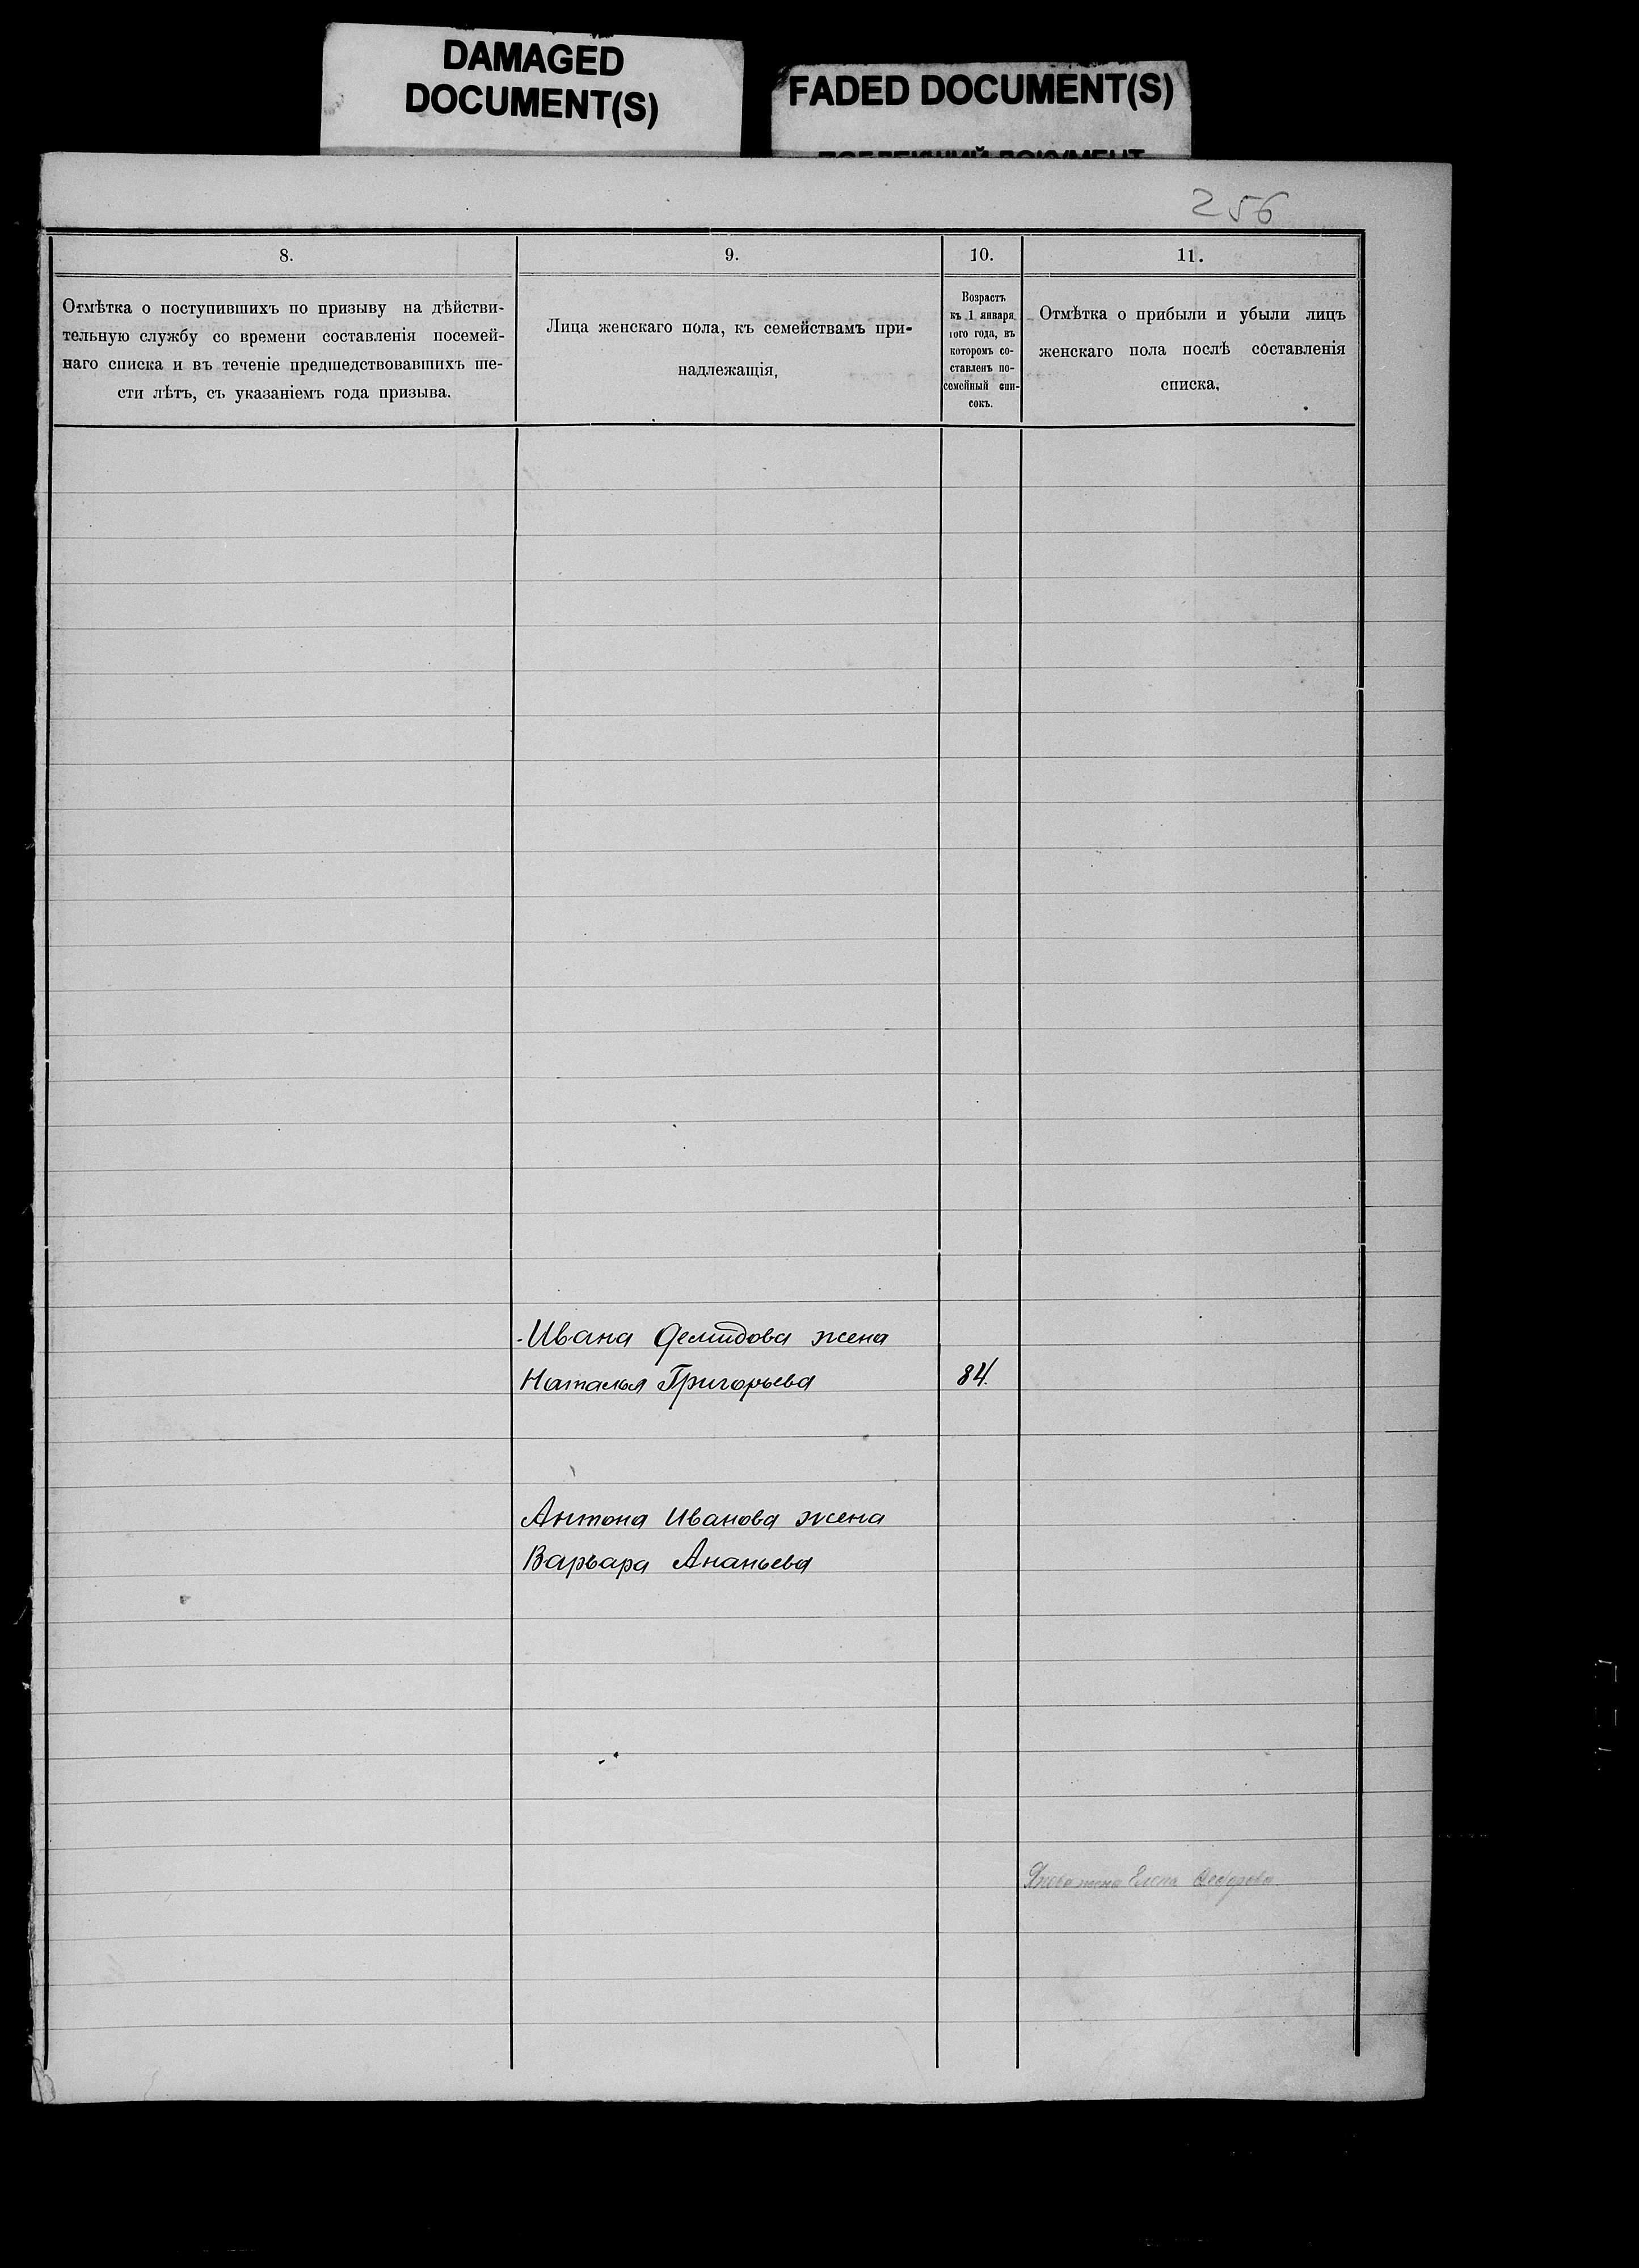 DAMAGED
DOCUMENT(S)
FADED DOCUMENT(S)
256
8.
9.
10.
11.
Отмѣтка о поступившихъ по призыву на дѣйстви-
тельную службу со времени составленія посемей-
наго списка и въ теченіе предшедствовавшихъ ше-
сти лѣтъ, съ указаніемъ года призыва.
Лица женскаго пола, къ семействамъ при-
надлежащія,
Возрастъ
къ 1 января
того года, въ
которомъ со-
ставленъ по-
семейный спи-
сокъ.
Отмѣтка о прибыли и убыли лицъ
женскаго пола послѣ составленія
списка,
Ивана Демидова жена
Наталья Григорьева
84.
Антона Иванова жена
Варвара Ананьева
жена Елена Федорова